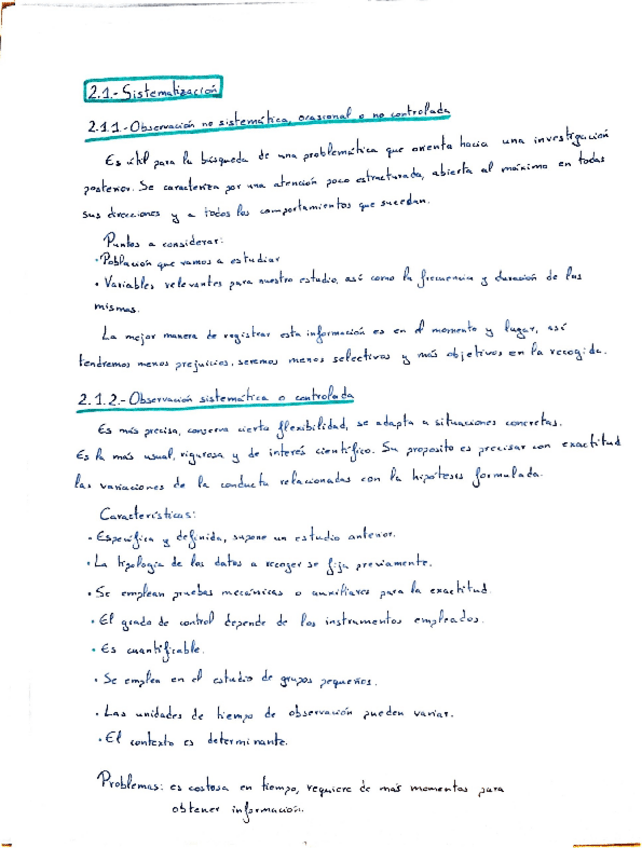 2.1.- Sistematización
2.1.1.- Observación no sistemática, ocasional o no controlada
Es útil para la búsqueda de una problemática que orienta hacia una investigación
posterior. Se caracteriza por una atención poco estructurada, abierta al máximo en todas
sus direcciones y a todos los comportamientos que sucedan.
Puntos a considerar:
· Población que vamos a estudiar
· Variables relevantes para nuestro estudio, así como la frecuencia y duración de las
mismas.
La mejor manera de registrar esta información es en el momento y lugar, así
tendremos menos prejuicios, seremos menos selectivos y más objetivos en la recogida.
2.1.2.- Observación sistemática o controlada
Es más precisa, conserva cierta flexibilidad, se adapta a situaciones concretas.
Es la más usual, rigurosa y de interés científico. Su proposito es precisar con exactitud
las variaciones de la conducta relacionadas con la hipótesis formulada.
Características:
· Específica y definida, supone un estudio anterior.
· La tipología de los datos a recoger se fija previamente.
· Se emplean pruebas mecánicas o auxiliares para la exactitud.
· El grado de control depende de los instrumentos empleados.
· Es cuantificable.
· Se emplea en el estudio de grupos pequeños.
· Las unidades de tiempo de observación pueden variar.
· El contexto es determinante.
Problemas: es costosa en tiempo, requiere de más momentos para
obtener información.